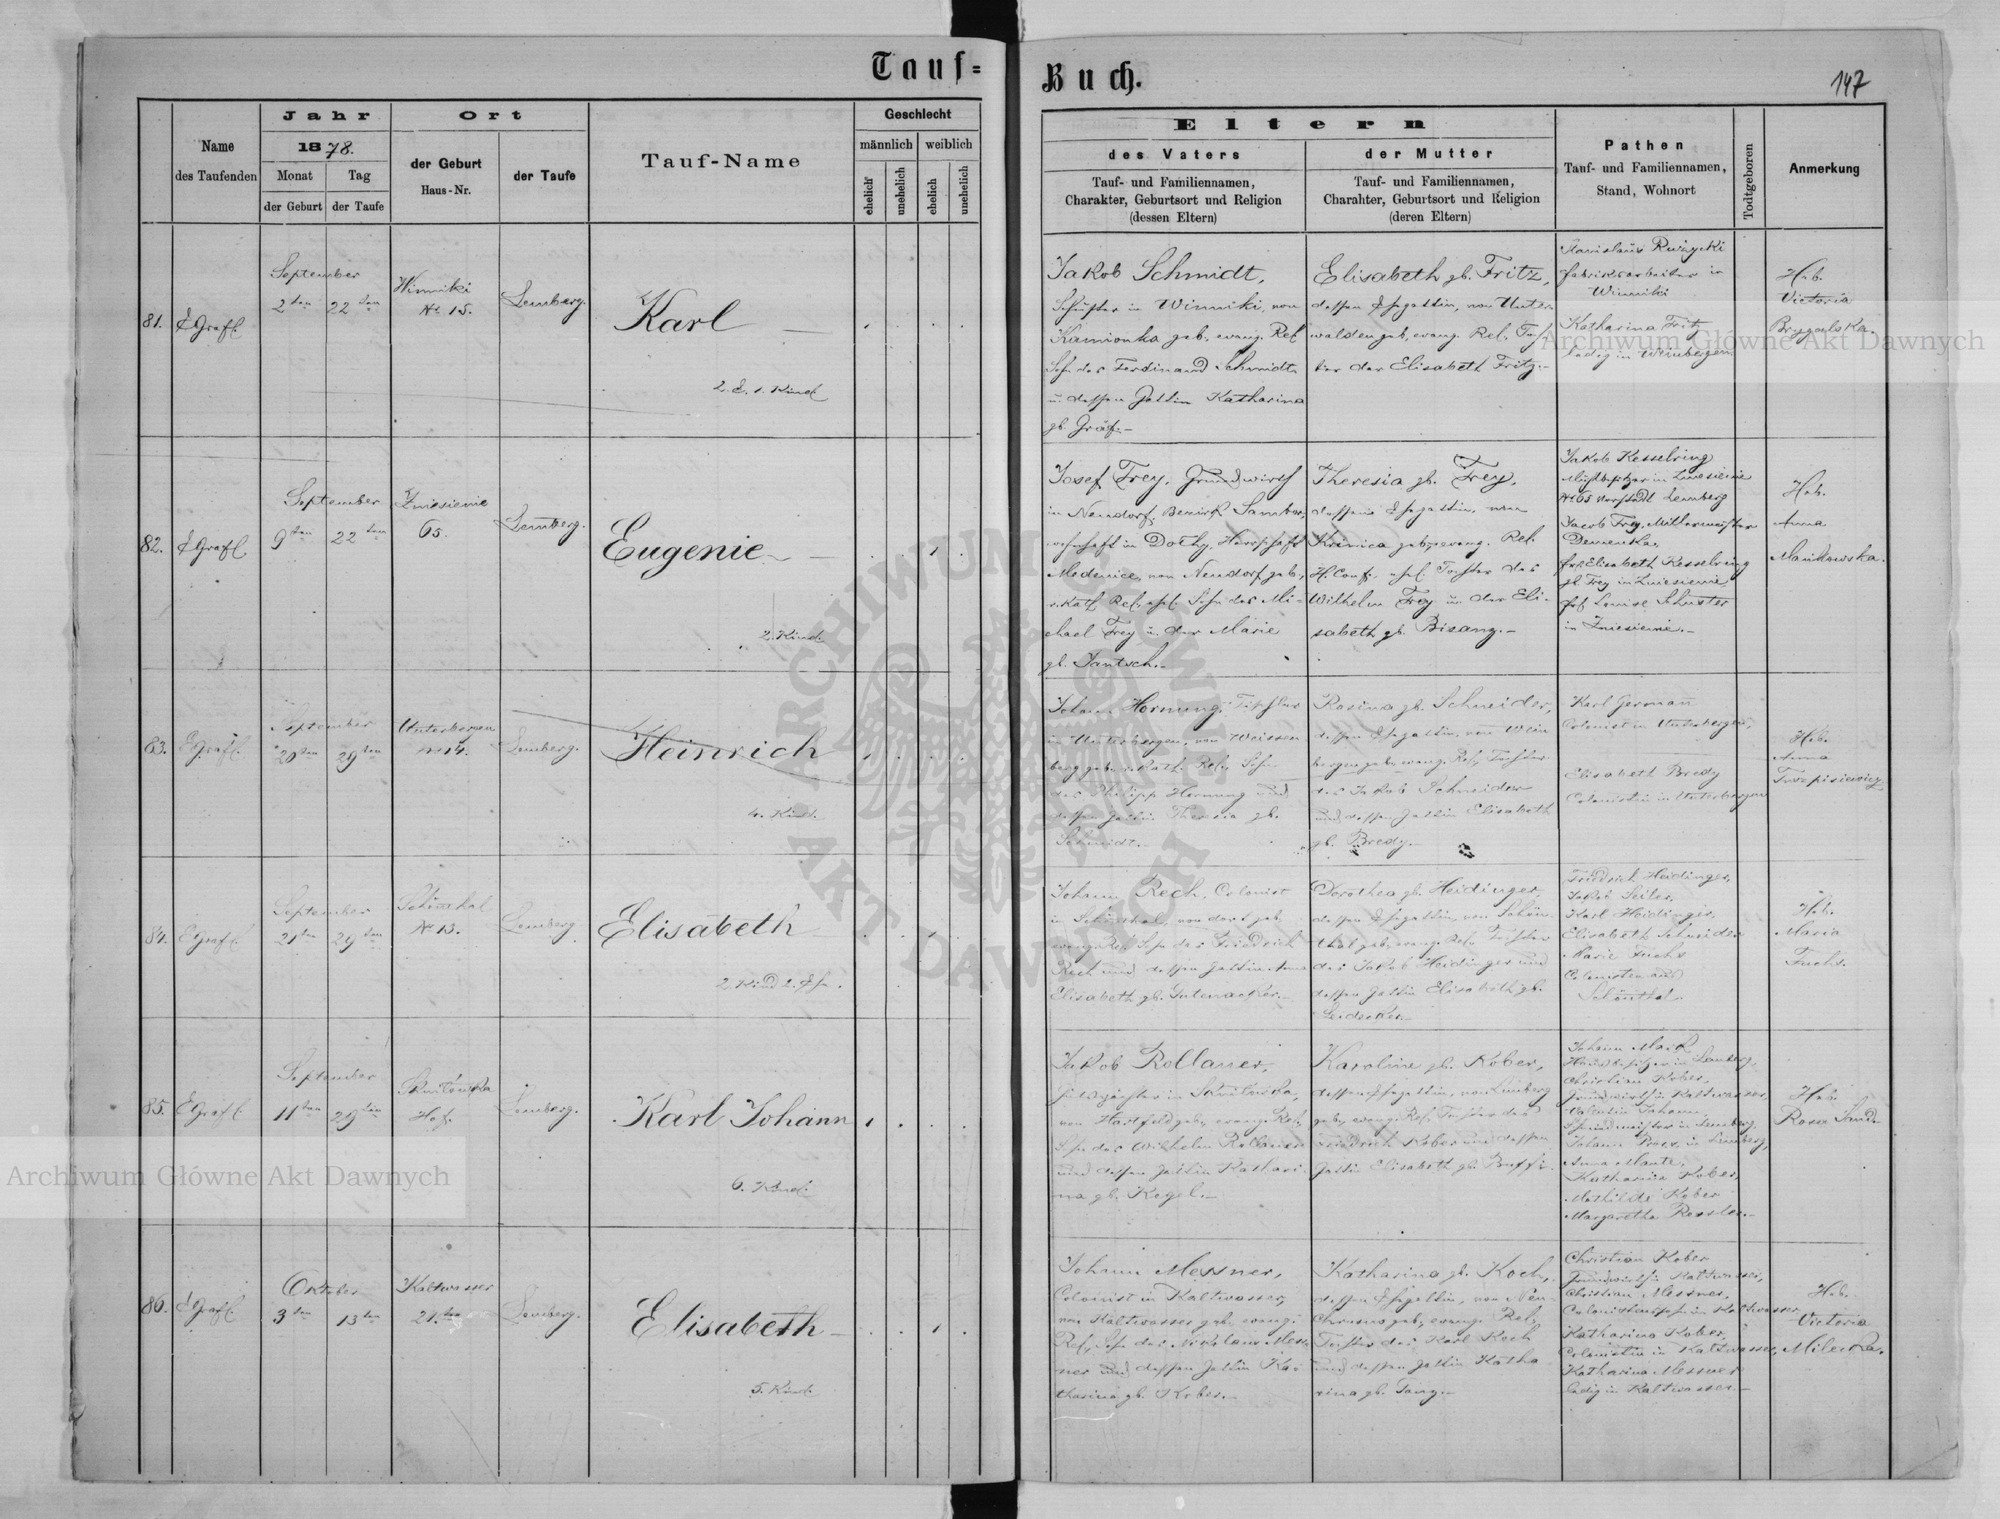 Tauf-
Buch.
147
Name
des Taufenden
Jahr
1878.
Monat
der Geburt
Tag
der Taufe
Ort
der Geburt
Haus-Nr.
der Taufe
Tauf-Name
Geschlecht
männlich
weiblich
ehelich
unehelich
ehelich
unehelich
Eltern
des Vaters
Tauf- und Familiennamen,
Charakter, Geburtsort und Religion
(dessen Eltern)
der Mutter
Tauf- und Familiennamen,
Charakter, Geburtsort und Religion
(deren Eltern)
Pathen
Tauf- und Familiennamen,
Stand, Wohnort
Todtgeboren
Anmerkung
81.
September
2ten 22ten
Winniki
No 15.
Lemberg.
Karl
2. E. 1. Kind
Jakob Schmidt,
Schuster in Winniki, von
Kamionka geb. evang. Rel.
Sohn des Ferdinand Schmidt
u. dessen Gattin Katharina
gb. Gräf.-
Elisabeth gb. Fritz,
dessen Ehegattin, von Unter
walden geb. evang. Rel. Toch
ter der Elisabeth Fritz.-
Stanislaus
Fabriksarbeiter in
Winniki
Katharina Fritz
ledig in Weinbergen
Heb.
Victoria
82.
September
9ten 22ten
Zniesienie
65.
Lemberg.
Eugenie
2. Kind
Josef Frey, Grundwirth
in Neudorf, Bezirk Sambor,
wohnhaft in Herrschaft
Medenice, von Neudorf geb.
r. kath. Rel. ehel. Sohn des Mi-
chael Frey u. der Marie
gb. Jantsch.-
Theresia gb. Frey,
dessen Ehegattin, von
geb. evang. Rel.
H. Conf. ehel. Tochter des
Wilhelm Frey u. der Eli-
sabeth gb. Bisanz.-
Jakob Kesselring
in Zniesienie
No 65 Vorstadt Lemberg
Jacob Frey,
Elisabeth Kesselring
gb. Frey in Zniesienie
Louise Schuster
in Zniesienie.-
Heb.
Anna
Mankowska.
83.
September
20ten 29ten
Unterbergen
No 14.
Lemberg.
Heinrich
4. Kind.
Johann Hornung, Tischler
in Unterbergen, von Weissen
berg geb. r. kath. Rel., Sohn
des Philipp Hornung und
dessen Gattin Theresia gb.
Schmidt.-
Rosina gb. Schneider,
dessen Ehegattin, von Wein
bergen geb. evang. Rel., Tochter
des Jakob Schneider
und dessen Gattin Elisabeth
gb. Bredy.-
Karl Germann
Colonist in Unterbergen,
Elisabeth Bredy
Colonistin in Unterbergen
Heb.
Anna
84.
September
21ten 29ten
Schönthal
No 13.
Lemberg
Elisabeth
2. Kind 2. Ehe.
Johann Rech, Colonist
in Schönthal, von dort geb.
evang. Rel. Sohn des Friedrich
Rech und dessen Gattin Anna
Elisabeth gb. Gutenacker.-
Dorothea gb. Heidinger
dessen Ehegattin, von Schön-
thal geb. evang. Rel. Tochter
des Jakob Heidinger und
dessen Gattin Elisabeth gb.
Leidecker.-
Friedrich Heidinger,
Jakob Seiler,
Karl Heidinger,
Elisabeth Schneider
Marie Fuchs
Colonisten aus
Schönthal.
Heb.
Maria
Fuchs.
85.
September
11ten 29ten
Hof.
Lemberg.
Karl Johann
6. Kind.
Jakob Rollauer,
von Hartfeld geb. evang. Rel.,
Sohn des Wilhelm Rollauer
und dessen Gattin Kathari-
na gb. Kegel.-
Karoline gb. Kober,
dessen Ehegattin, von Lemberg
geb. evang. Rel. Tochter des
Friedrich Kober und dessen
Gattin Elisabeth gb.
Johann
in Lemberg,
Christian Kober,
Grundwirth in Kaltwasser,
Valentin Johann,
in Lemberg,
Johann in Lemberg,
Anna
Katharina Kober,
Mathilde Kober
Margaretha
Heb.
Rosa
86.
Oktober
3ten 13ten
Kaltwasser
Lemberg.
Elisabeth
5. Kind.
Johann Messner,
Colonist in Kaltwasser,
von Kaltwasser geb. evang.
Rel., Sohn des Nikolaus Mess
ner und dessen Gattin Ka-
tharina gb. Kober.-
Katharina gb. Koch,
dessen Ehegattin, von Neu-
Chrusno geb. evang. Rel.,
Tochter des Karl Koch
und dessen Gattin Katha
rina gb.
Christian Kober
Grundwirth in Kaltwasser,
Christian Messner,
Colonistensohn in Kaltwasser
Katharina Kober,
Colonistin in Kaltwasser,
Katharina Messner
ledig in Kaltwasser-
Heb.
Victoria
Milecka.
Archiwum Główne Akt Dawnych
Archiwum Główne Akt Dawnych
ARCHIWUM GŁÓWNE AKT DAWNYCH